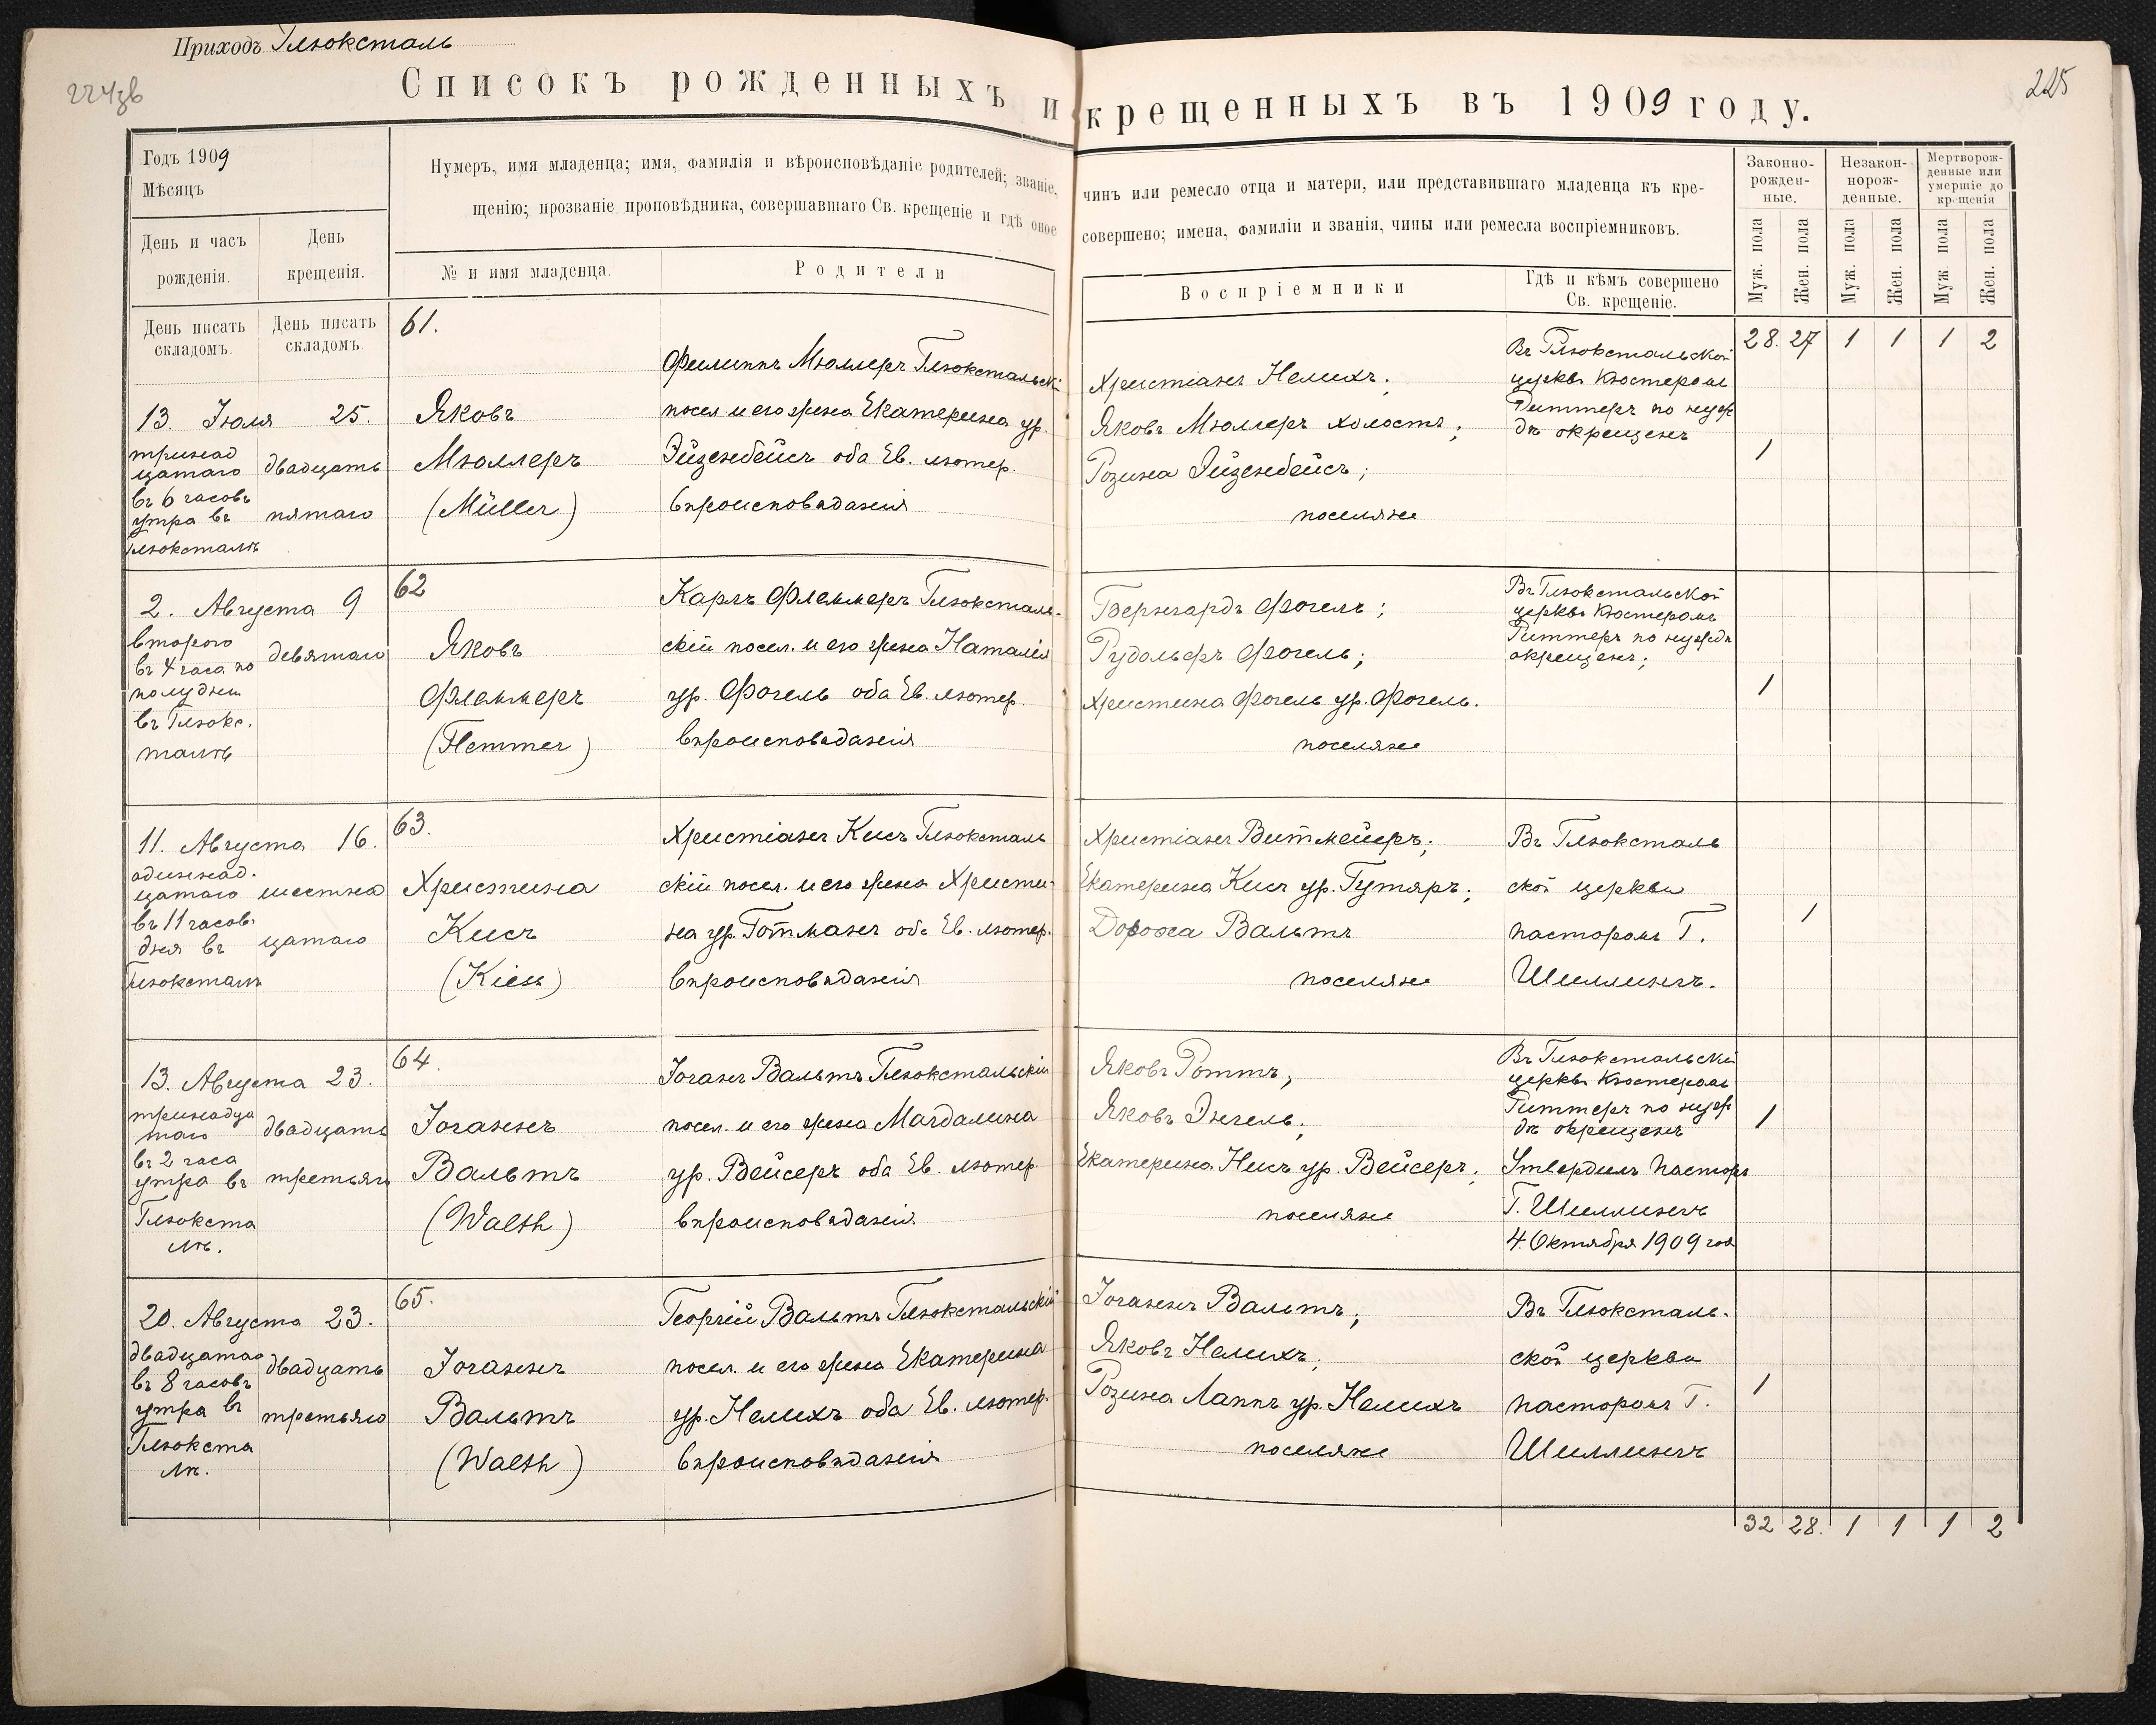 Приходъ Глюксталь
224зв
225
Списокъ рожденныхъ и крещенныхъ въ 1909 году.
Годъ 1909
Мѣсяцъ
День и часъ рожденія.
День крещенія.
Нумеръ, имя младенца; имя, фамилія и вѣроисповѣданіе родителей; званіе, чинъ или ремесло отца и матери, или представившаго младенца къ кре-
щенію; прозваніе проповѣдника, совершавшаго Св. крещеніе и гдѣ оное совершено; имена, фамиліи и званія, чины или ремесла воспріемниковъ.
№ и имя младенца.
Родители
Воспріемники
Гдѣ и кѣмъ совершено
Св. крещеніе.
Законно-
рожден-
ные.
Незакон-
норож-
денные.
Мертворож-
денные или
умершіе до
крещенія
Муж. пола
Жен. пола
Муж. пола
Жен. пола
Муж. пола
Жен. пола
День писать
складомъ.
День писать
складомъ.
28. 27 1 1 1 2
61.
13. Іюля 25.
тринад
цатаго
въ 6 часовъ
утра въ
Глюксталѣ
двадцать
пятаго
Яковъ
Мюллеръ
(Müller)
Филиппъ Мюллеръ Глюкстальскі
посел. и его жена Екатерина ур.
Эйзенбейсъ оба Ев. лютер.
вѣроисповѣданія
Христіанъ Нелихъ;
Яковъ Мюллеръ холостъ;
Розина Эйзенбейсъ;
поселяне
Въ Глюкстальской
церкви Кюстеромъ
Риттеръ по нуж
дѣ окрещенъ
1
62
2. Августа 9
второго
въ 4 часа по
полудни
въ Глюкс.
талѣ
девятаго
Яковъ
Флеммеръ
(Flemmer)
Карлъ Флеммеръ Глюксталь-
скій посел. и его жена Наталія
ур. Фогель оба Ев. лютер.
вѣроисповѣданія
Бернгардъ Фогель;
Рудольфъ Фогель;
Христина Фогель ур. Фогель.
поселяне
Въ Глюкстальской
церкви Кюстеромъ
Риттеръ по нуждѣ
окрещенъ;
1
63.
11. Августа 16.
одиннад.
цатаго
въ 11 часовъ
дня въ
Глюксталѣ
шестна
цатаго
Христина
Кисъ
(Kiess)
Христіанъ Кисъ Глюксталь
скій посел. и его жена Христи-
на ур. Готманъ оба Ев. лютер.
вѣроисповѣданія
Христіанъ Витмейеръ;
Екатерина Кисъ ур. Гутяръ;
Дороѳа Вальтъ
поселяне
Въ Глюксталь
ской церкви
пасторомъ Г.
Шиллингъ.
1
64.
13. Августа 23.
тринадца
таго
въ 2 часа
утра въ
Глюкста
лѣ.
двадцать
третьяго
Іоганнъ
Вальтъ
(Walth)
Іоганъ Вальтъ Глюкстальскій
посел. и его жена Магдалина
ур. Вейсеръ оба Ев. лютер.
вѣроисповѣданія
Яковъ Роттъ;
Яковъ Энгель;
Екатерина Нисъ ур. Вейсеръ;
поселяне
Въ Глюкстальскій
церкви Кюстеромъ
Риттеръ по нуж
дѣ окрещенъ
Утвердилъ пасторъ
Г. Шиллингъ
4. Октября 1909 года
1
65.
20. Августа 23.
двадцатаго
въ 8 часовъ
утра въ
Глюкста
лѣ.
двадцать
третьяго
Іоганнъ
Вальтъ
(Walth)
Георгій Вальтъ Глюкстальскій
посел. и его жена Екатерина
ур. Нелихъ оба Ев. лютер.
вѣроисповѣданія
Іоганнъ Вальтъ;
Яковъ Нелихъ;
Розина Лаппъ ур. Нелихъ
поселяне
Въ Глюксталь.
ской церкви
пасторомъ Г.
Шиллингъ
1
32 28. 1 1 1 2